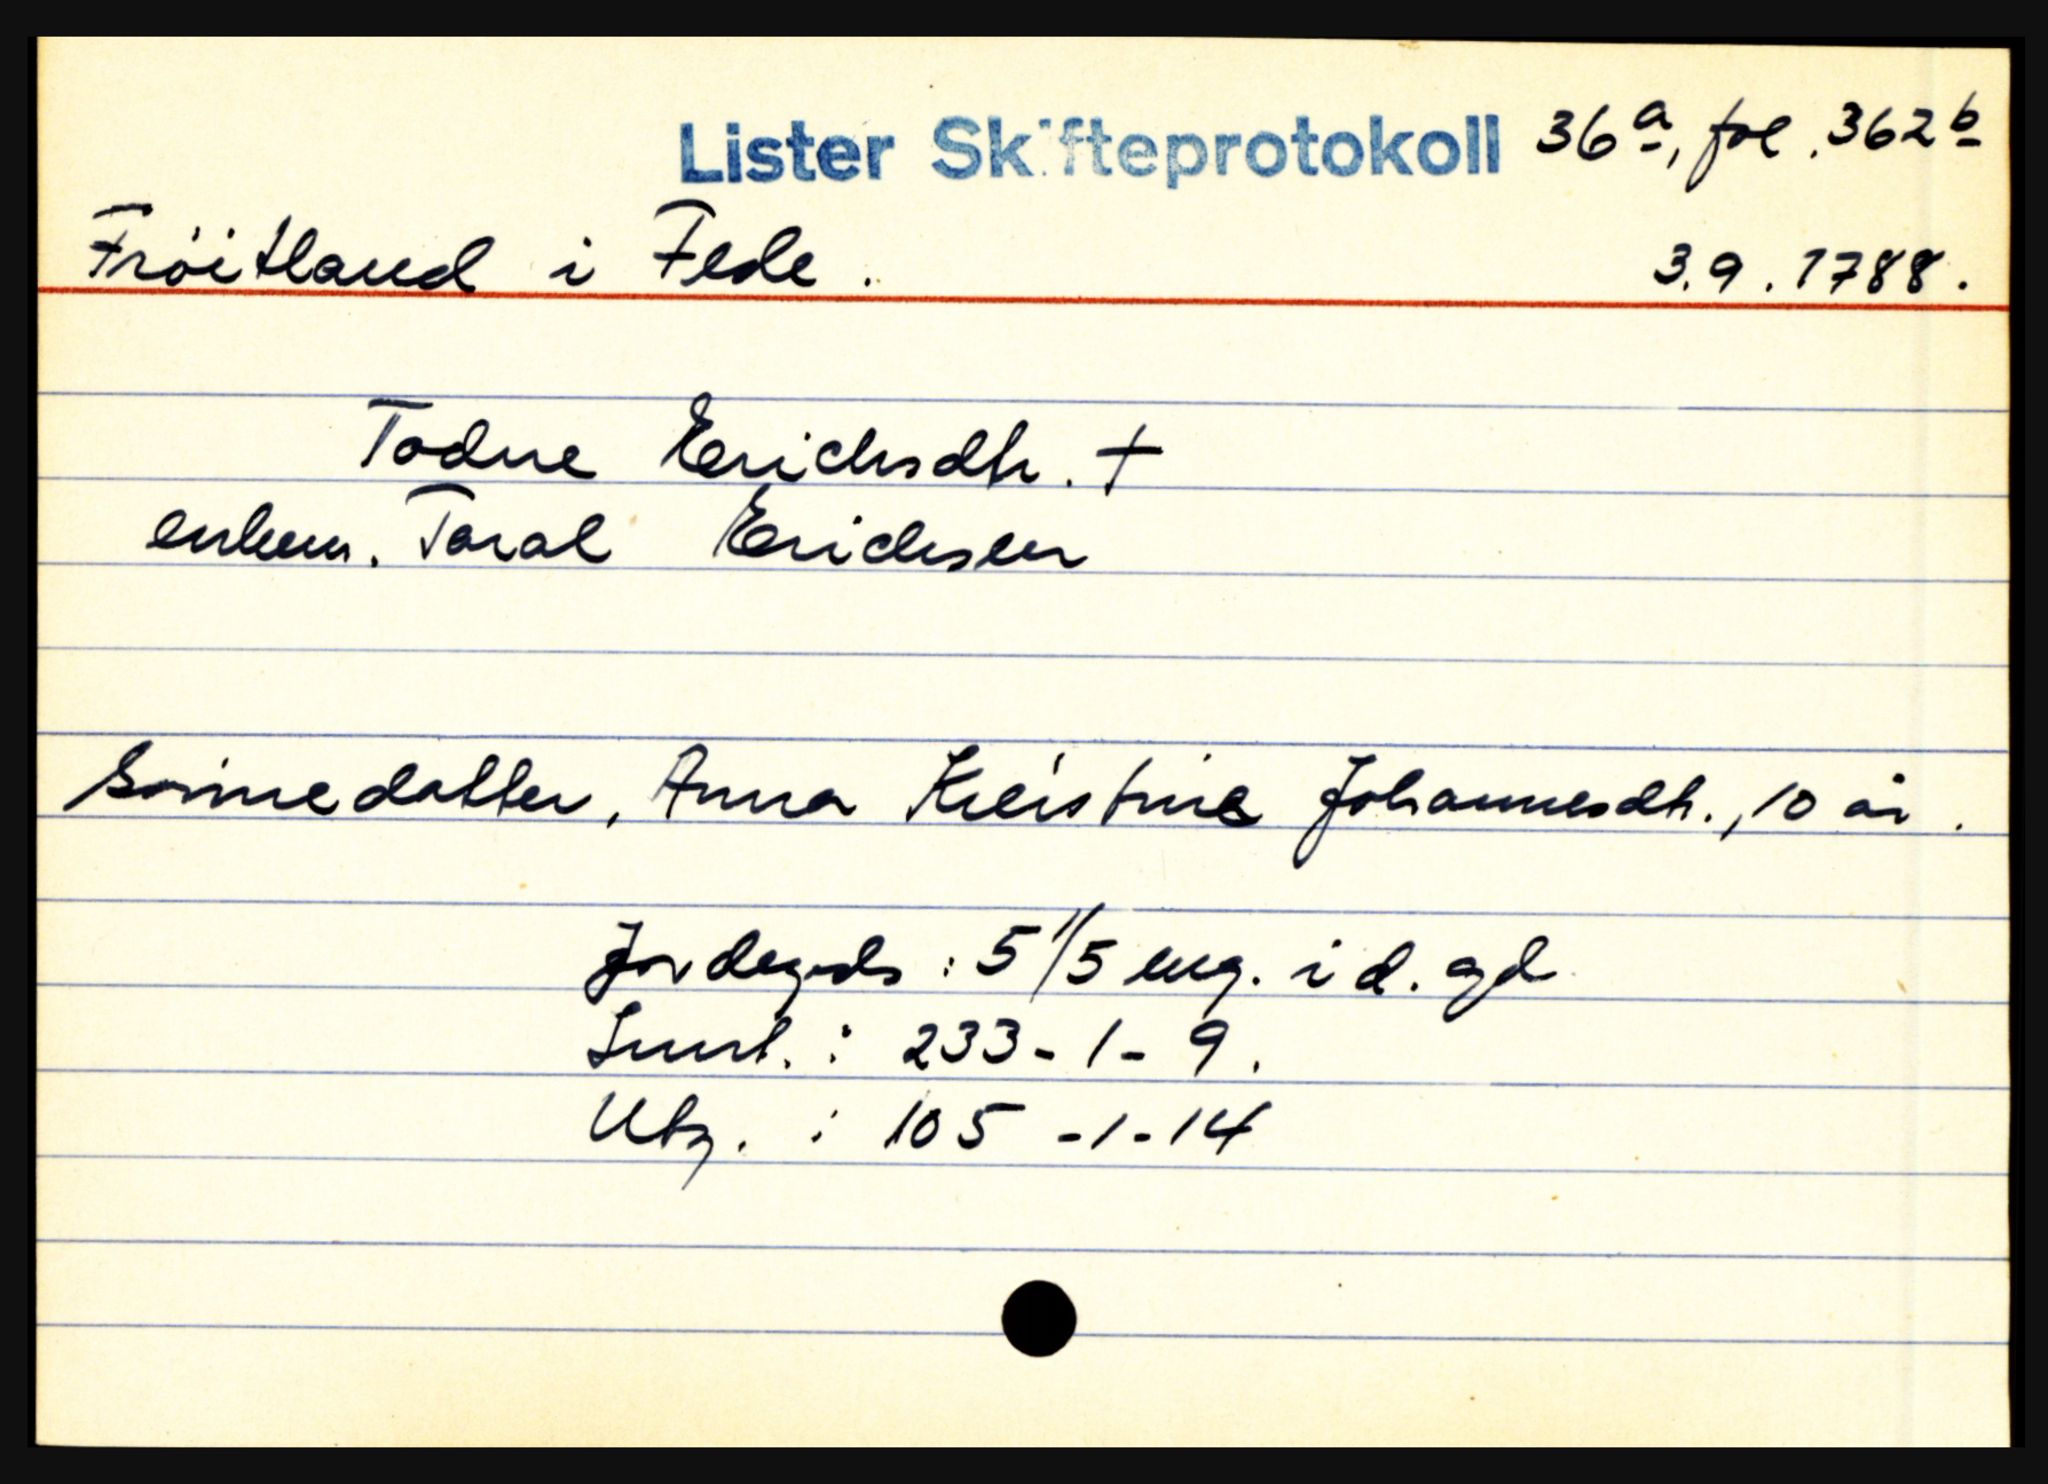 Lister Skifteprotokoll 36a, fol. 362b
Fröitland i Fede. 3.9.1788.
Todne Erichsdtr. †
enkem. Taral Erichsen
Sønnedatter, Anna Kristine Johannesdtr., 10 år.
Jordegods: 5 1/5 eng. i d. gd
Innt.: 233-1-9.
Utg.: 105-1-14